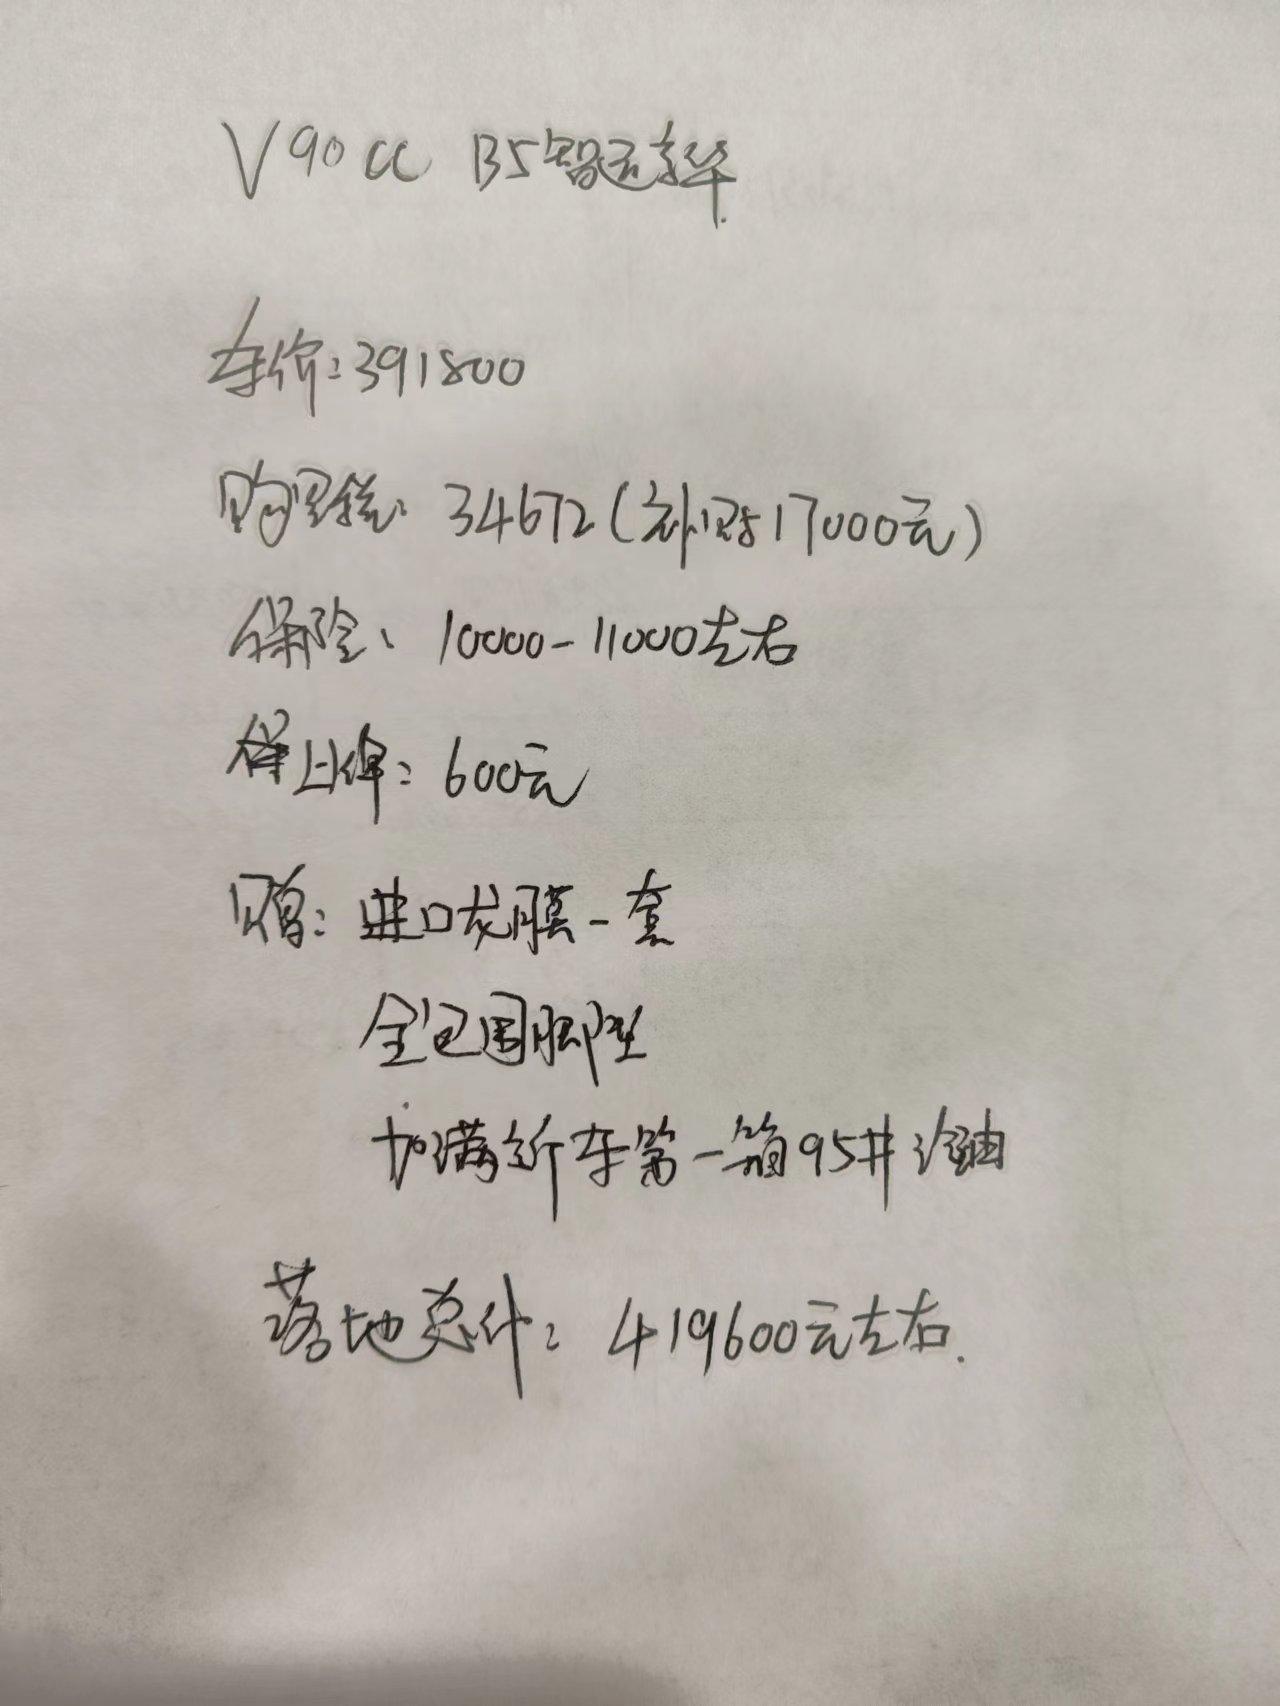 V90CC B5智远豪华
车价：391800
购置税：34672（补贴17000元）
保险：10000-11000左右
上牌：600元
贝曾：进口龙膜一套
全包围脚垫
加满新车第一箱95#汽油
落地总价：419600元左右.